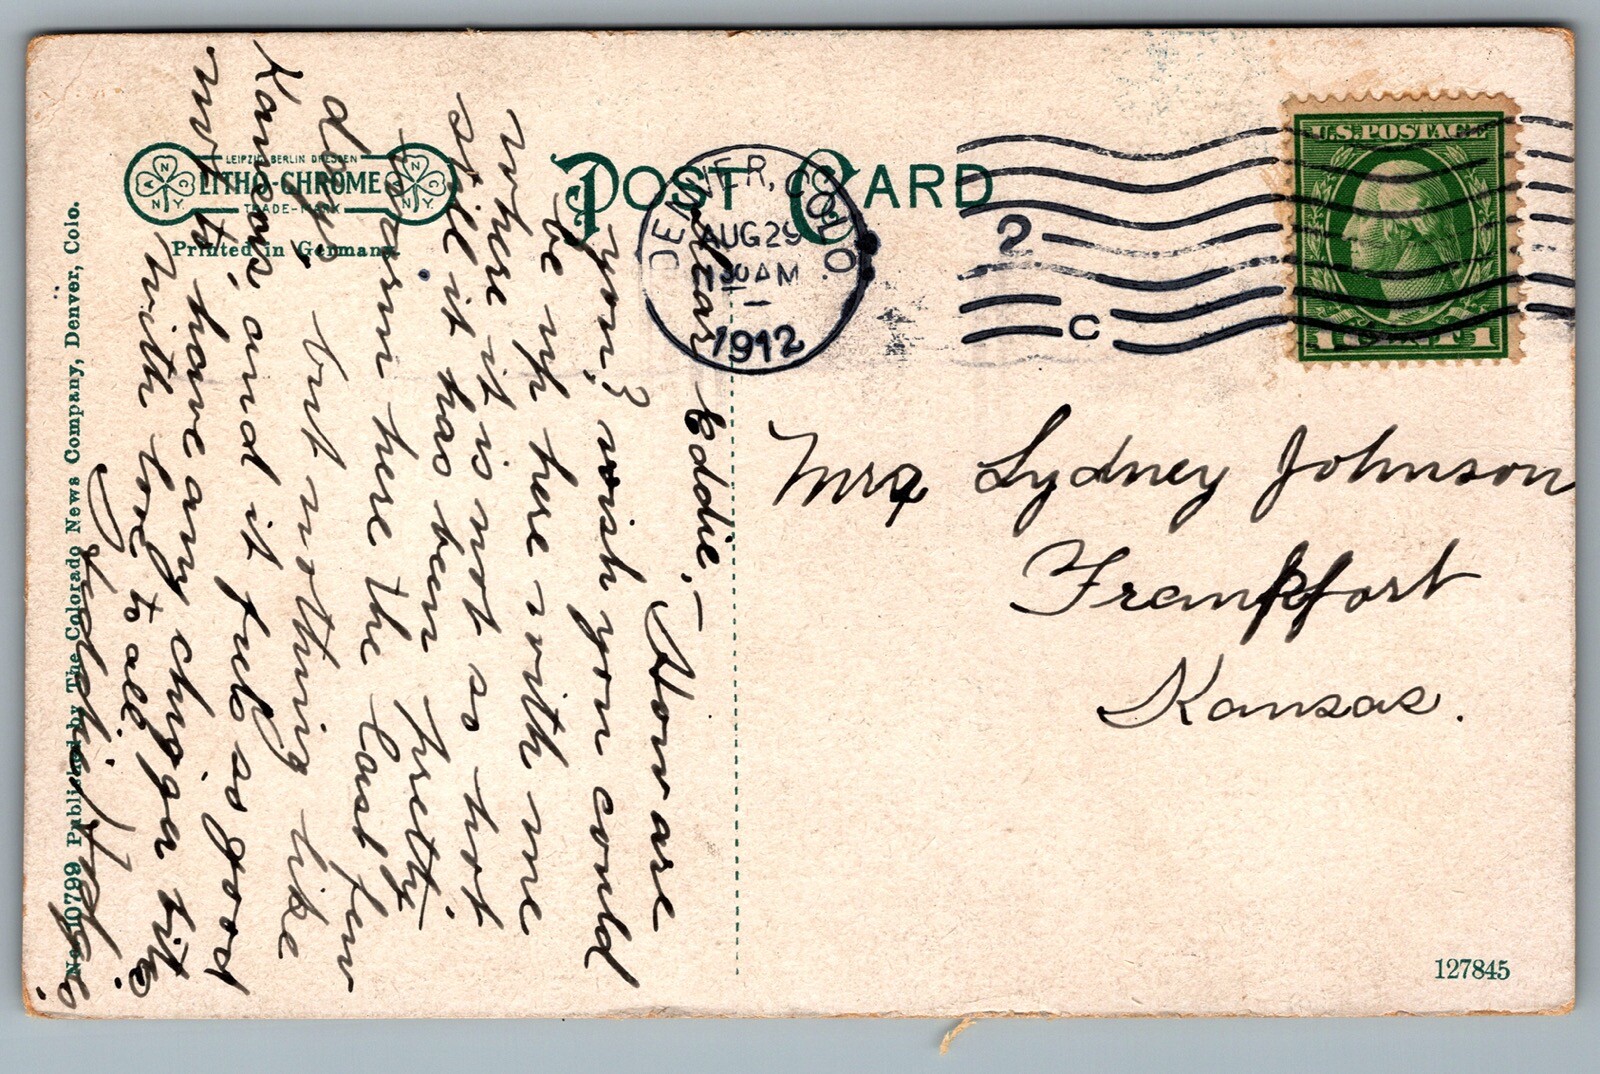 LEIPZIG BERLIN DRESDEN
LITHO-CHROME
TRADE-MARK
Printed in Germany
POST CARD
DENVER, COLO.
AUG 29
30 AM
1912
2
C
U.S. POSTAGE
1 CENT 1
Dear Eddie,-
How are
you? wish you could
be up here with me
where it is not so hot
still it has been pretty
warm here the last few
days. but nothing like
Kansas, and it feels so good
not to have any chigger bites
With love to all.
Mrs Sydney Johnson
Frankfort
Kansas.
No. 10799 Published by The Colorado News Company, Denver, Colo.
127845